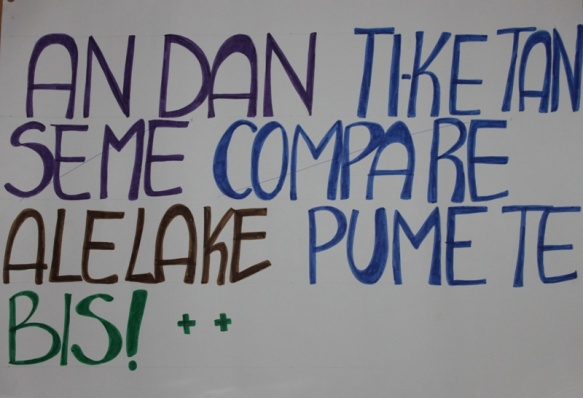 AN DAN TI-KE TAN
SEME COMPARE
ALELAKE PUMETE
BIS! ++